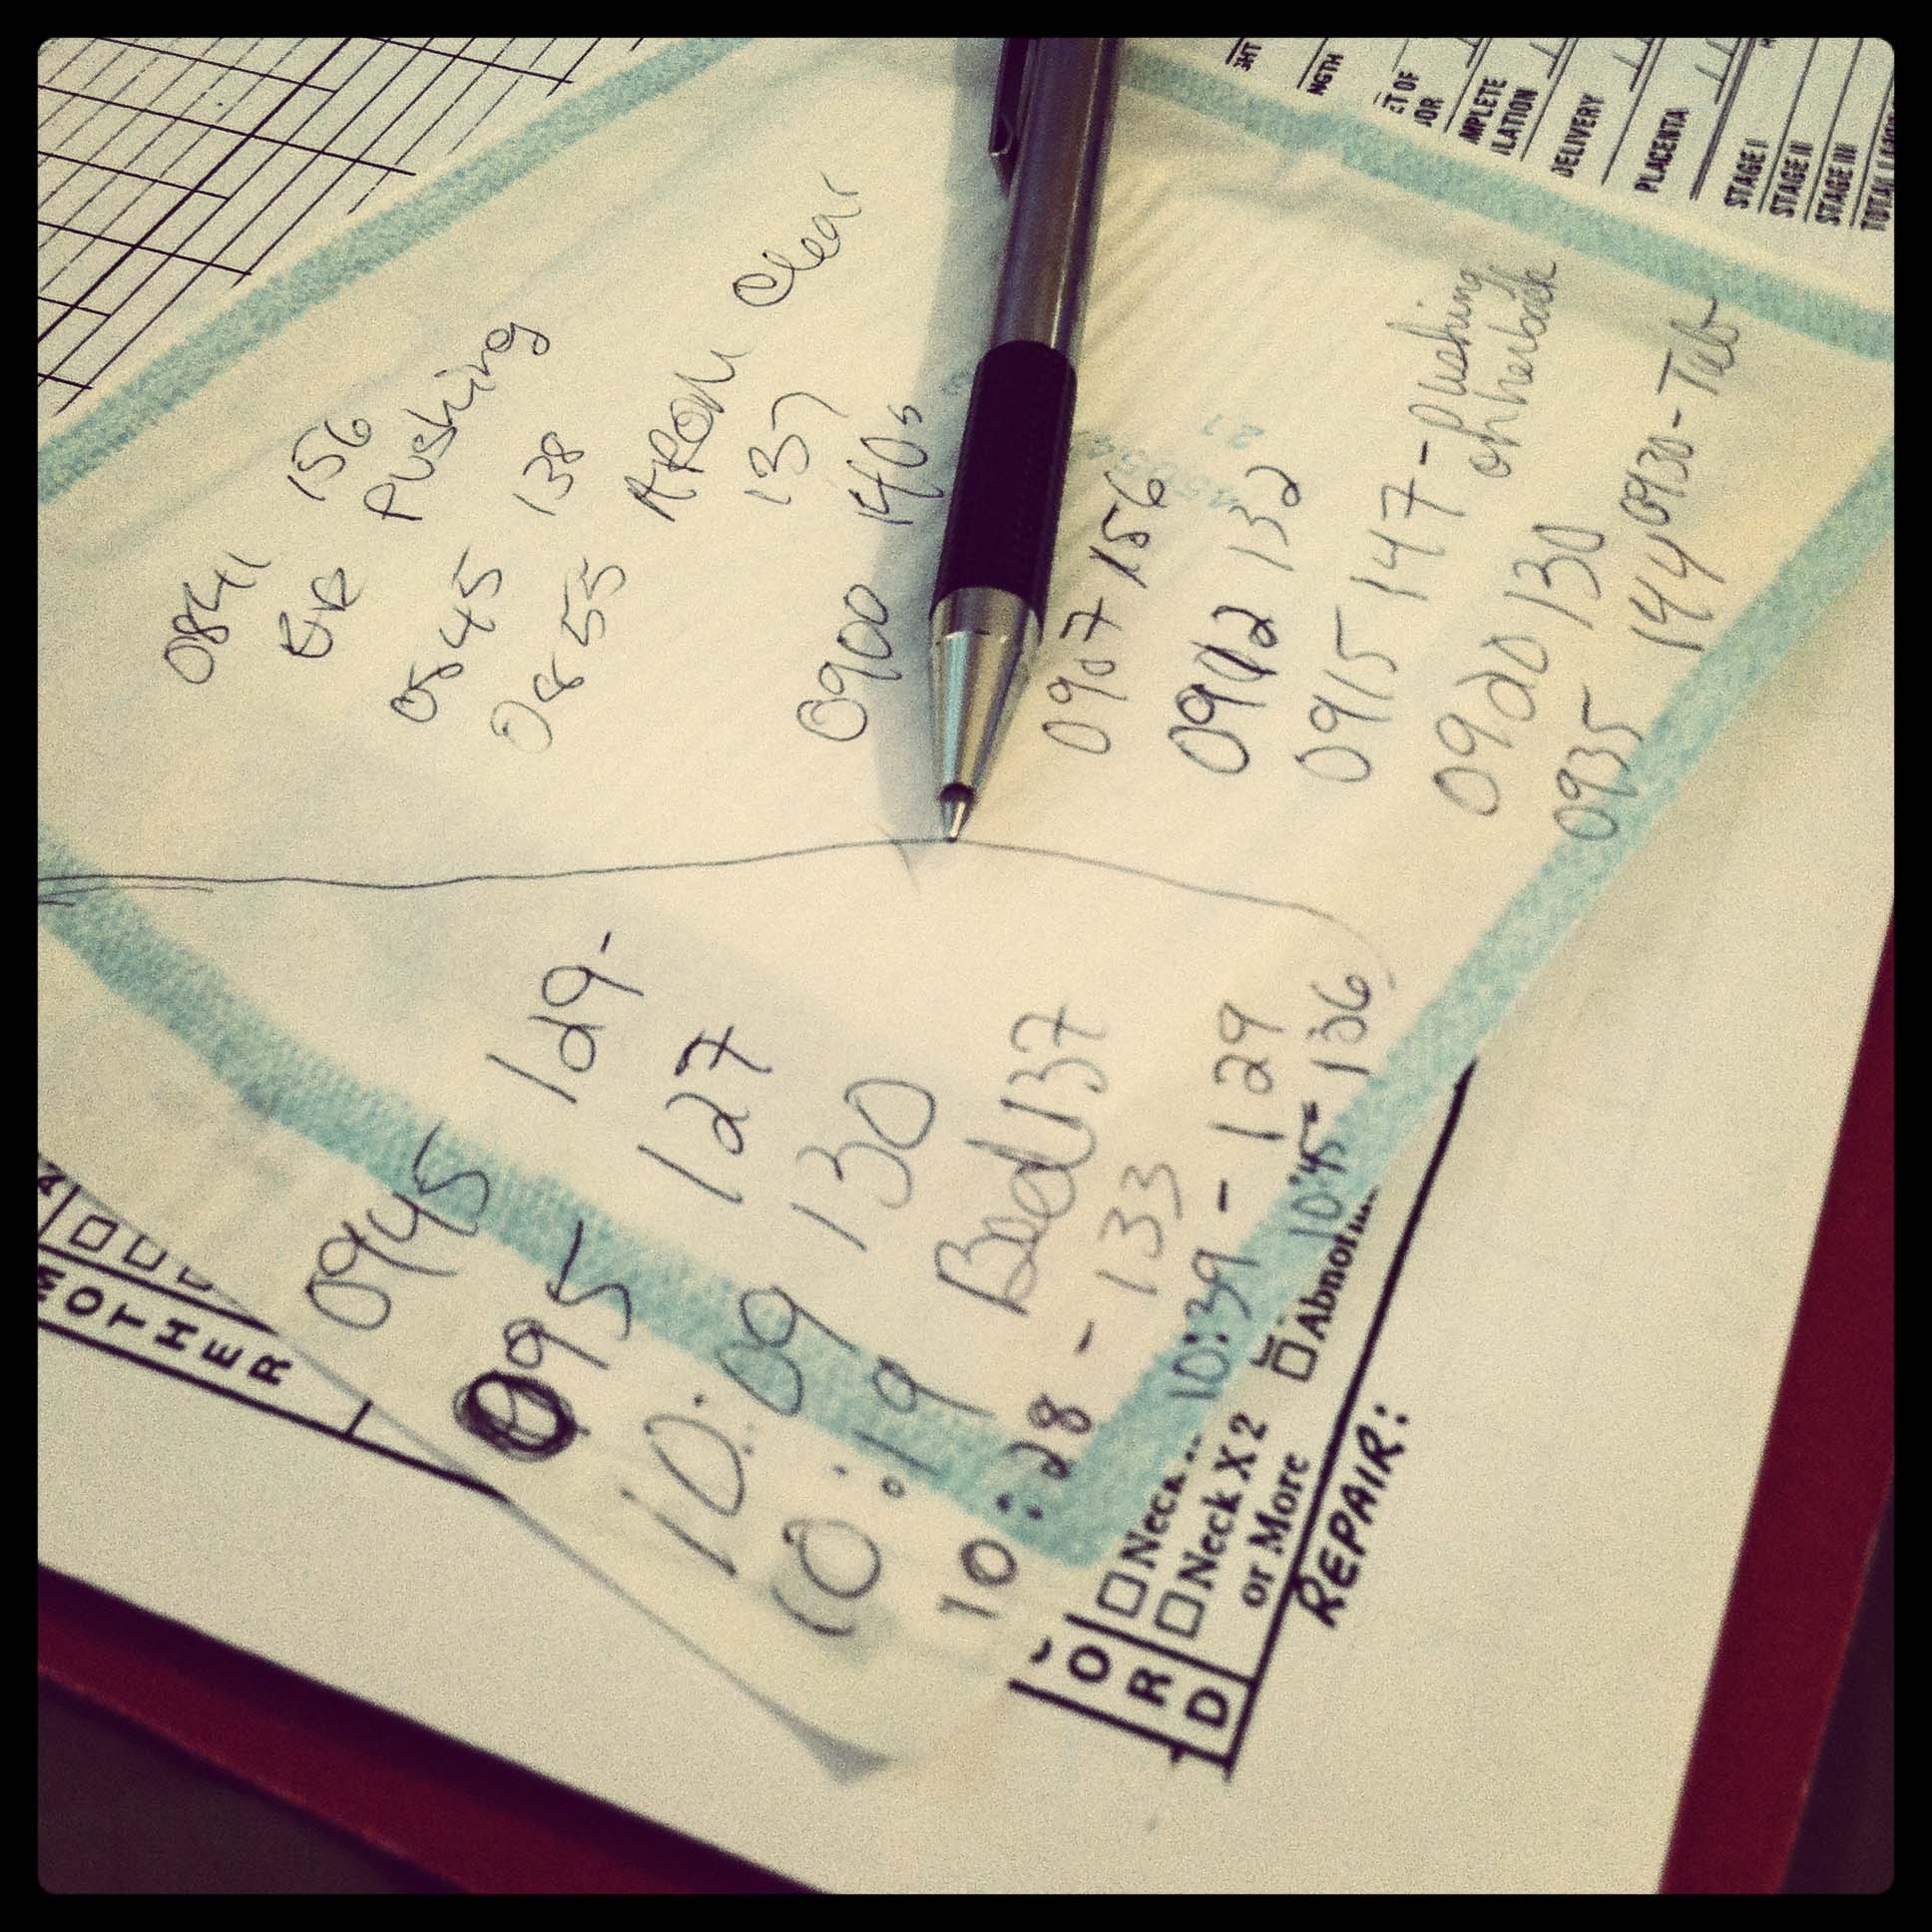 0841 156
Pushing
0845 138
0855 AROM Clear
137
0900 140s
0907 156
0912 132
0915 147 - pushing
on her back
0920 130
0935 144 0930 - Tub
0945 129-
095 127
10:09 130
10:19 Bed 137
10:28 - 133
10:39 - 129
10:45 - 136
DELIVERY
PLACENTA
STAGE I
STAGE II
STAGE III
MOTHER
O
R
D
Neck X 2
or More
REPAIR: